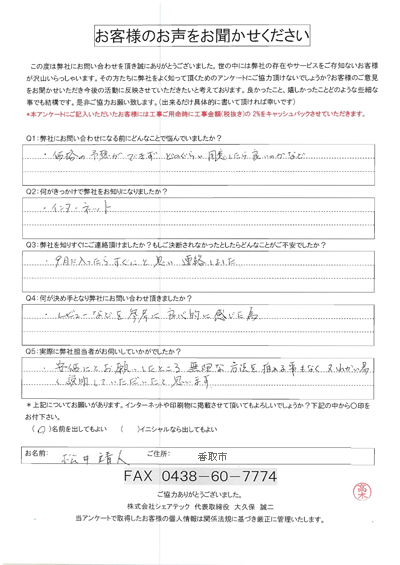 お客様のお声をお聞かせください
この度は弊社にお問い合わせを頂き誠にありがとうございました。世の中には弊社の存在やサービスをご存知ないお客様
が沢山いらっしゃいます。その方たちに弊社をよく知って頂くためのアンケートにご協力頂けないでしょうか?お客様のご意見
をお聞かせいただき今後の活動に反映させていただきたいと考えております。良かったこと、嬉しかったことどのような些細な
事でも結構です。是非ご協力お願い致します。(出来るだけ具体的に書いて頂ければ幸いです)
*本アンケートにご記入いただいたお客様には工事ご用命時に工事金額(税抜き)の 2%をキャッシュバックさせていただきます。
Q1:弊社にお問い合わせになる前にどんなことで悩んでいましたか?
・価格の予想ができず どのくらい用意したら良いのかなど
Q2:何がきっかけで弊社をお知りになりましたか?
・インターネット
Q3:弊社を知りすぐにご連絡頂けましたか?もしご決断されなかったとしたらどんなことがご不安でしたか?
・9月に入ったらすぐにと思い連絡しました
Q4:何が決め手となり弊社にお問い合わせ頂きましたか?
・レビューなどを参考に 良心的に感じた為
Q5:実際に弊社担当者がお伺いしていかがでしたか?
・安価にとお願いしたところ 無理な方法を推める事もなく
説明していただいたと思います
*上記についてお願いがあります。インターネットや印刷物に掲載させて頂いてもよろしいでしょうか?下記の中から〇印を
お付下さい。
(〇)名前を出してもよい ( )イニシャルなら出してもよい
お名前: 松井 靖人 ご住所: 香取市
FAX 0438-60-7774
ご協力ありがとうございました。
株式会社シェアテック 代表取締役 大久保 誠二
当アンケートで取得したお客様の個人情報は関係法規に基づき厳正に管理いたします。